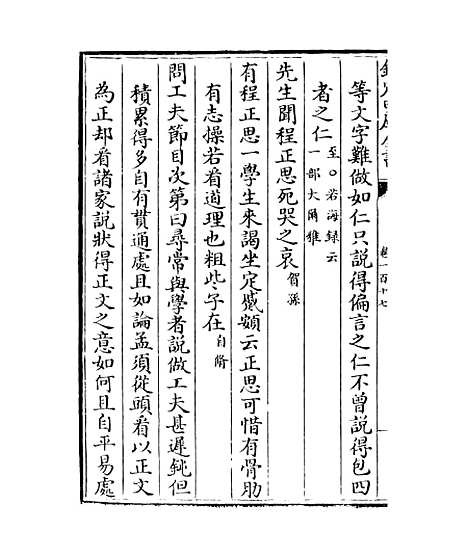 欽定四庫全書
卷一百十七
等文字難做如仁只說得偏言之仁不曾說得包四
者之仁至○若海錄云一部大爾雅
先生聞程正思死哭之哀賀孫
有程正思一學生來謁坐定蹙頞云正思可惜有骨肋
有志操若看道理也粗些子在自脩
問工夫節目次第曰尋常與學者說做工夫甚遲鈍但
積累得多自有貫通處且如論孟須從頭看以正文
為正却看諸家說狀得正文之意如何且自平易處